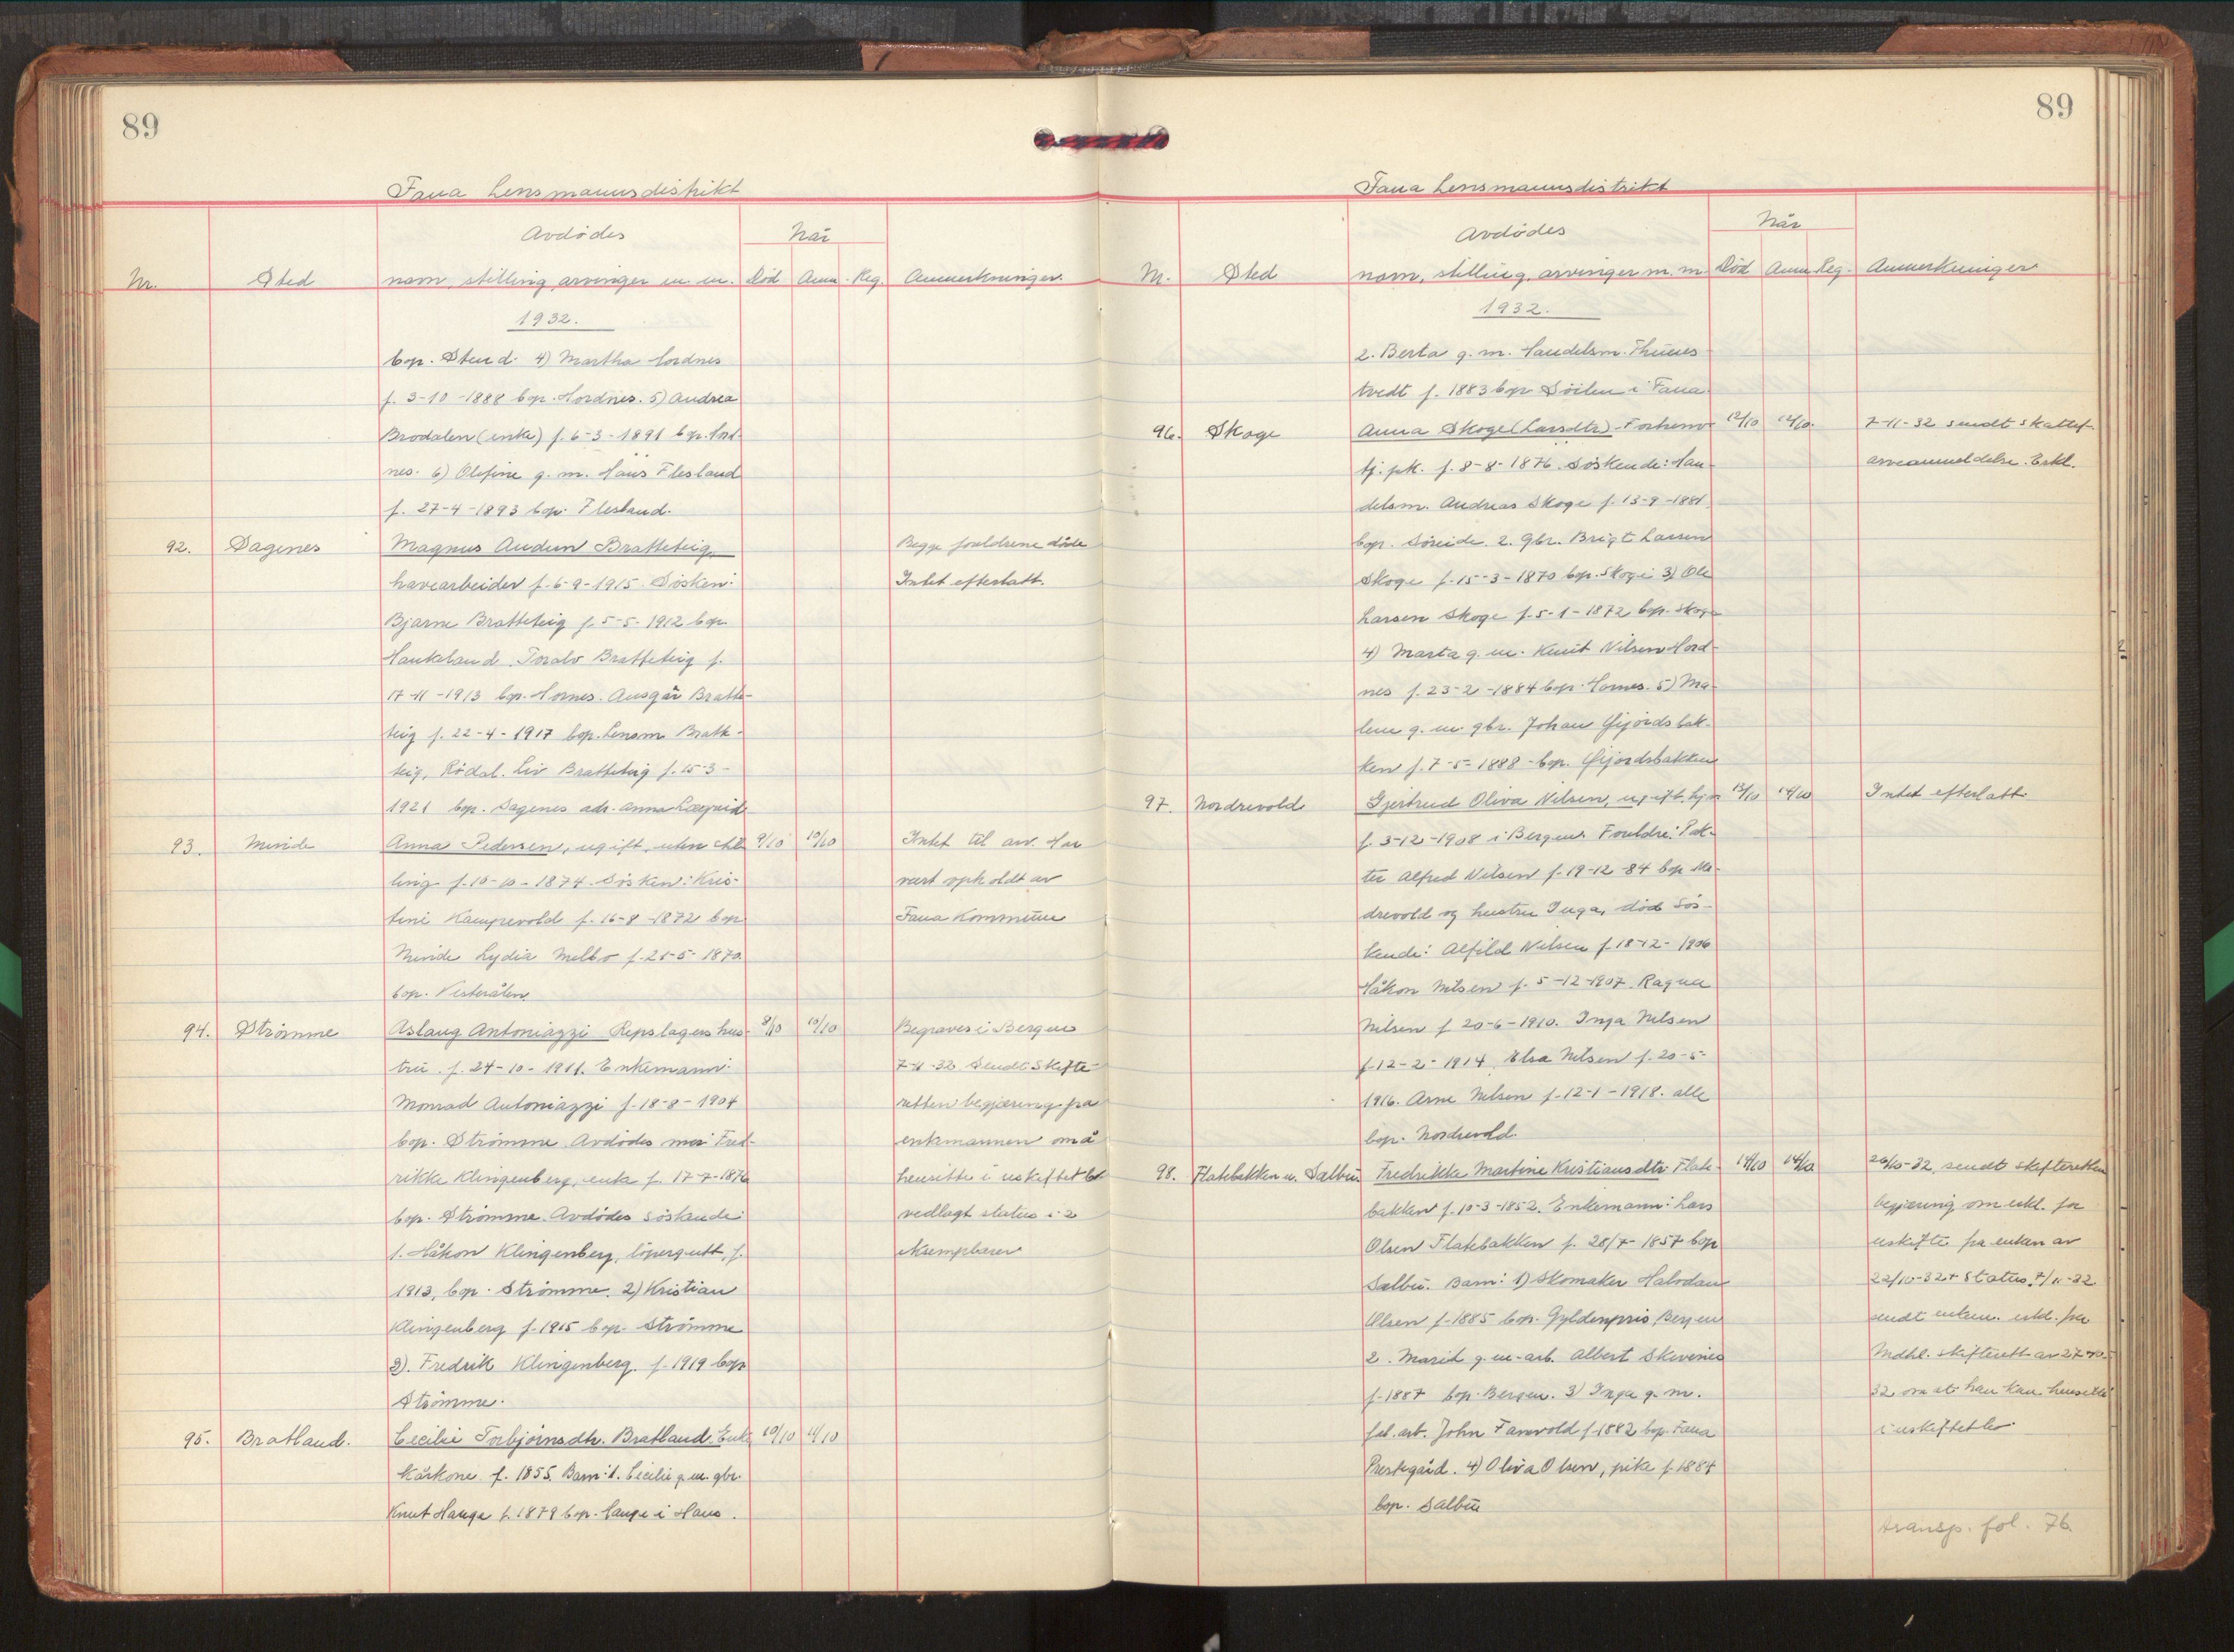 89
Fana Lensmannsdistrikt
Avdödes
Når
Nr.
Sted
navn, stilling, arvinger m. m.
Död
Anm.
Reg.
Anmerkninger.
1932.
bop. Stend. 4) Martha Hordnes
f. 3-10-1888 bop. Hordnes. 5) Andrea
Brodalen (enke) f. 6-3-1891 bop. Hord-
nes. 6) Olefine g. m. Hans Flesland
f. 27-4-1893 bop. Flesland.
92. Dagenes Magnus Audun Bratteteig, Begge foreldrene döde
havearbeider f. 6-9-1915. Sösken: Intet efterlatt.
Bjarne Bratteteig f. 5-5-1912 bop.
Haukeland. Toralv Bratteteig f.
17-11-1913 bop. Hornes. Ansgar Bratte-
teig f. 22-4-1917 bop. Lensm. Bratte-
teig, Rådal. Liv Bratteteig f. 15-3-
1921 bop. Dagenes adr. Anna
93. Minde Anna Pedersen, ugift, uten 9/10 10/10 Intet til arv. Har
ling f. 10-10-1874. Sösken: Kris- vært opholdt av
tine Kamprevold f. 16-8-1872 bop. Fana Kommune
Minde Lydia Melbo f. 25-5-1870.
bop. Vesterålen
94. Strömme Aslaug Antoniazzi Repslagers hus- 8/10 10/10 Begraves i Bergen
tru f. 24-10-1911. Enkemann: 7-11-32. Sendt Skifte-
Monrad Antoniazzi f. 18-8-1904 retten begjæring fra
bop. Strömme. Avdödes mor Fred- enkemannen om å
rikke Klingenberg, enke f. 17-7-1876 hensitte i uskiftet bo
bop. Strömme. Avdödes söskende: vedlagt status i 2
1. Håkon Klingenberg, löpergutt, f. eksemplarer
1913, bop. Strömme. 2) Kristian
Klingenberg f. 1915 bop. Strömme
3). Fredrik Klingenberg. f. 1919 bop
Strömme.
95. Bratland. Cecilie Torbjörnsdtr. Bratland. Enke 10/10 11/10
Kårkone f. 1855. Barn: 1. Cecilie g. m. gbr.
Knut Hauge f. 1879 bop. Hauge i Haus.
89
Fana Lensmannsdistrikt
Avdödes
Når
Nr.
Sted
navn, stilling, arvinger m. m.
Död
Anm.
Reg.
Anmerkninger
1932.
2. Berta g. m. Handelsm. Thunes-
tvedt f. 1883 bop. i Fana.
96. Skoge Anna Skoge (Larsdtr) - Forhenv. 12/10 12/10. 7-11-32 sendt skattef.
tj. pk. f. 8-8-1876. Söskende: Han- arveanmeldelse. Erkl.
delsm. Andreas Skoge f. 13-9-1881
bop. Söreide. 2. Gbr. Brigt Larsen
Skoge f. 15-3-1870 bop. Skoge 3) Ole
Larsen Skoge f. 5-1-1872 bop. Skoge
4) Marta g. m. Knut Nilsen Hord-
nes f. 23-2-1884 bop. Hornes. 5) Ma-
lene g. m. gbr. Johan Gjjördsbak-
ken f. 7-5-1888 - bop. Gjjördsbakken
97. Nordrevold Gjertrud Oliva Nilsen, ugift, 13/10 14/10 Intet efterlatt.
f. 3-12-1908 i Bergen. Foreldre: Pet-
ter Alfred Nilsen f. 19-12-84 bop. No-
drevold og hustru Inga, död Sös-
kende: Alfild Nilsen f. 18-12-1906
Håkon Nilsen f. 5-12-1907. Ragna
Nilsen f. 20-6-1910. Inga Nilsen
f. 12-2-1914. Elsa Nilsen f. 20-5-
1916. Arne Nilsen f. 12-1-1918. alle
bop. Nordrevold.
98. Flatebakken u. Salbu. Fredrikke Martine Kristiansdtr. Flate- 14/10 14/10 26/10-32, sendt skifteretten
bakken f. 10-3-1852. Enkemann: Lars begjæring om erkl. for
Olsen Flatebakken f. 28/7-1857 bop uskifte fra enkem av
Salbu. Barn: 1) Skomaker Halvdan 22/10-32 + Status. 7/11-32
Olsen f. 1885 bop. Gyldenpris Bergen sendt enkem. erkl. fra
2. Marit g. m. arb. Albert Skivenes Mdhl. skifterett av 27-10-
f. 1887 bop. Bergen. 3) Inga g. m. 32 om at han kan hensitte
fab. arb. John Fanevold f. 1882 bop. Fana i uskiftet bo
Prestegård. 4) Oliva Olsen, pike f. 1884
bop. Salbu
transp. fol. 76.